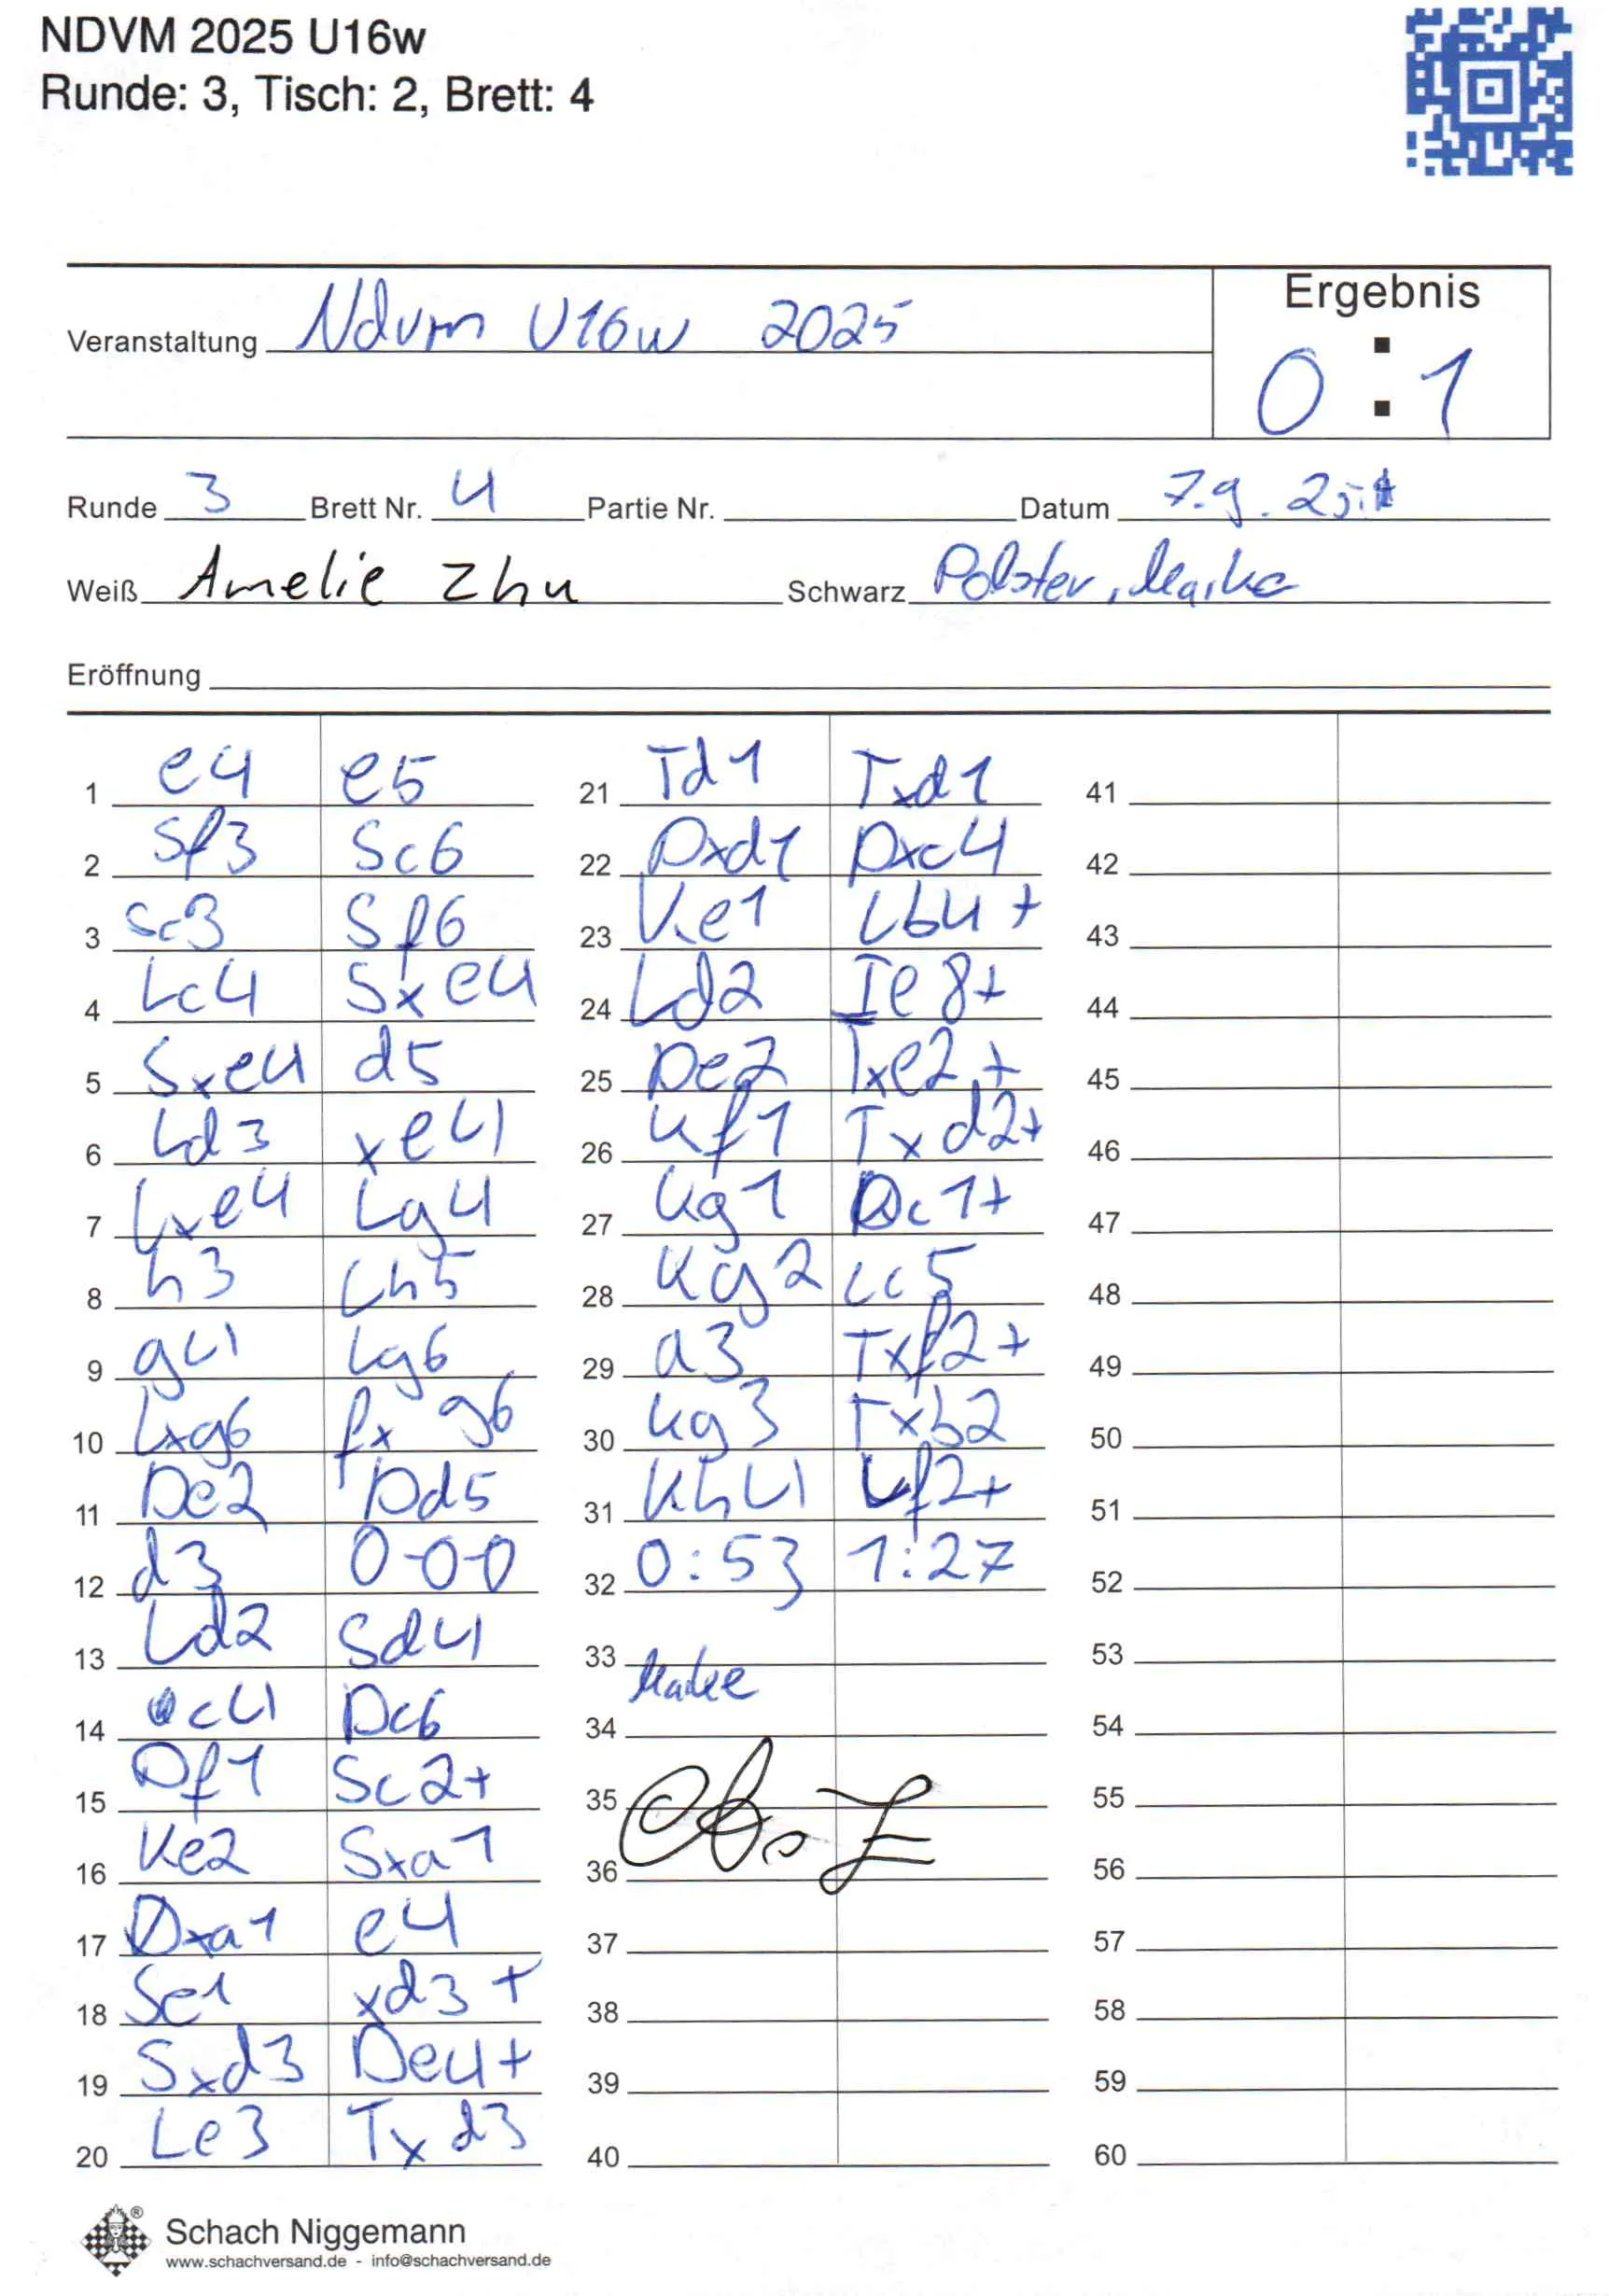 NDVM 2025 U16w
Runde: 3, Tisch: 2, Brett: 4
Veranstaltung Ndvm U16w 2025
Ergebnis
0 : 1
Runde 3 Brett Nr. 4 Partie Nr. Datum 7.9.25
Weiß Amelie Zhu Schwarz Polster, Maike
Eröffnung
1 e4 e5 21 Td1 Txd1 41
2 Sf3 Sc6 22 Dxd1 Dxc4 42
3 Sc3 Sf6 23 Ke1 Lb4+ 43
4 Lc4 Sxe4 24 Ld2 Te8+ 44
5 Sxe4 d5 25 De2 Txe2+ 45
6 Ld3 xe4 26 Kf1 Txd2+ 46
7 Lxe4 Lg4 27 Kg1 Dc1+ 47
8 h3 Lh5 28 Kg2 Lc5 48
9 g4 Lg6 29 a3 Txf2+ 49
10 Lxg6 fxg6 30 Kg3 Txb2 50
11 De2 Dd5 31 Kh4 Lf2+ 51
12 d3 0-0-0 32 0:53 1:27 52
13 Ld2 Sd4 33 53
Maike
14 c4 Dc6 34 54
15 Df1 Sc2+ 35 55
16 Ke2 Sxa1 36 56
17 Dxa1 e4 37 57
18 Se1 xd3+ 38 58
19 Sxd3 De4+ 39 59
20 Le3 Txd3 40 60
Schach Niggemann
www.schachversand.de - info@schachversand.de